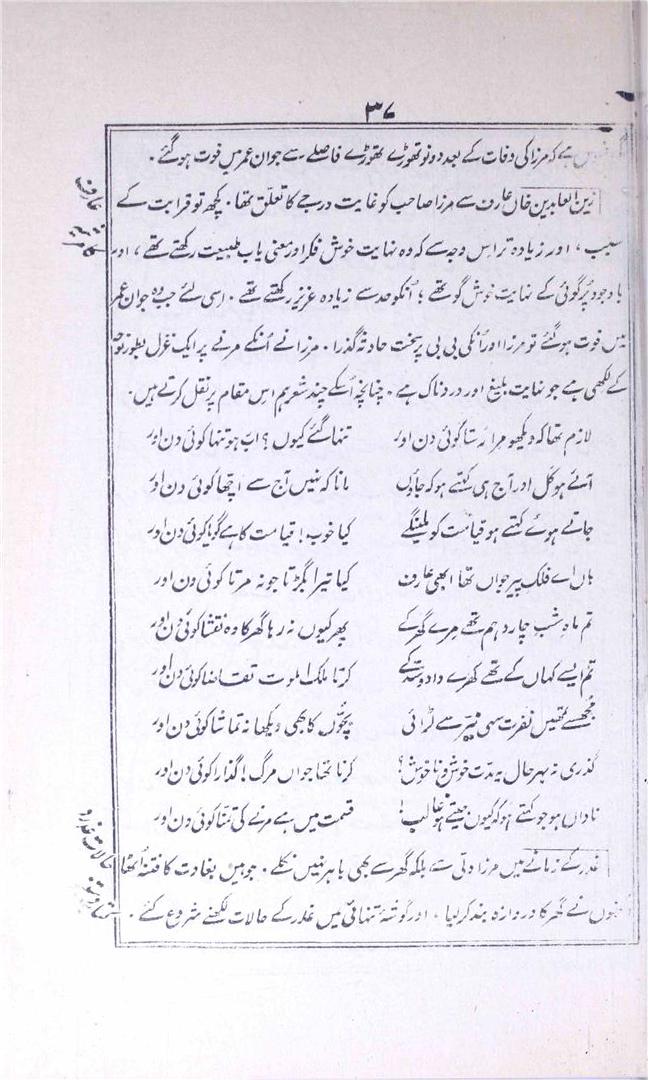 ۳۷
ہے کہ مرزا کی وفات کے بعد دونو تھوڑے تھوڑے فاصلے سے جوان عمر میں فوت ہوگئے۔
زین العابدین خاں عارف سے مرزا صاحب کو غایت درجے کا تعلق تھا۔ کچھ تو قرابت کے
سبب، اور زیادہ تر اس وجہ سے کہ وہ نہایت خوش فکر اور معنی یاب طبیعت رکھتے تھے، اور
باوجود پُرگوئی کے نہایت خوش گو تھے؛ اُنکو حد سے زیادہ عزیز رکھتے تھے۔ اسی لئے جب وہ جوان عمر
میں فوت ہوگئے تو مرزا اور اُنکی بی بی پر سخت حادثہ گذرا۔ مرزا نے اُنکے مرنے پر ایک غزل بطور نوحہ
کے لکھی ہے جو نہایت بلیغ اور دردناک ہے۔ چنانچہ اُسکے چند شعر ہم اِس مقام پر نقل کرتے ہیں۔
لازم تھا کہ دیکھو مرا رستا کوئی دن اور تنہا گئے کیوں؟ اب رہو تنہا کوئی دن اور
آئے ہو کل اور آج ہی کہتے ہو کہ جاؤں مانا کہ نہیں آج سے اچھا کوئی دن اور
جاتے ہوئے کہتے ہو قیامت کو ملینگے کیا خوب! قیامت کا ہے گویا کوئی دن اور
ہاں اے فلکِ پیر جواں تھا ابھی عارف کیا تیرا بگڑتا جو نہ مرتا کوئی دن اور
تم ماہِ شبِ چاردہم تھے مرے گھر کے پھر کیوں نہ رہا گھر کا وہ نقشا کوئی دن اور
تم ایسے کہاں کے تھے کھرے داد و ستد کے کرتا ملک الموت تقاضا کوئی دن اور
مجھسے تمھیں نفرت سہی نیر سے لڑائی بچوں کا بھی دیکھا نہ تماشا کوئی دن اور
گذری نہ بہر حال یہ مدت خوش و ناخوش؟ کرنا تھا جواں مرگ! گذارا کوئی دن اور
ناداں ہو جو کہتے ہو کہ کیوں جیتے ہو غالب! قسمت میں ہے مرنے کی تمنا کوئی دن اور
غدر کے زمانے میں مرزا دلی سے بلکہ گھر سے بھی باہر نہیں نکلے۔ جوہیں بغاوت کا فتنہ اُٹھا
اُنہوں نے گھر کا دروازہ بند کرلیا، اور گوشۂ تنہائی میں غدر کے حالات لکھنے شروع کئے۔
عارف
کا مرثیہ
حالاتِ غدر